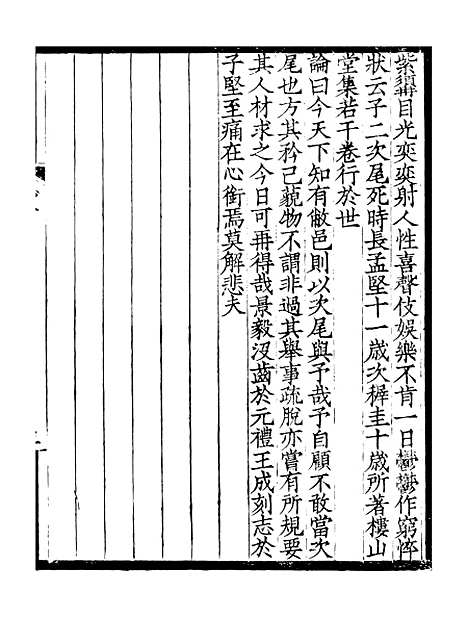 紫鬚目光奕奕射人性喜聲伎娛樂不肯一日鬱鬱作窮悴
狀云子二次尾死時長孟堅十一歲次穉圭十歲所著樓山
堂集若干卷行於世
論曰今天下知有敝邑則以次尾與予哉予自顧不敢當次
尾也方其矜己藐物不謂非過其舉事疏脫亦嘗有所規要
其人材求之今日可再得哉景毅沒齒於元禮王成刻志於
子堅至痛在心銜焉莫解悲夫